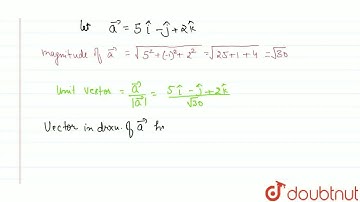 let a⃗ = 5 î - ĵ + 2 k̂
magnitude of a⃗ = √(5² + (-1)² + 2²) = √(25 + 1 + 4) = √30
Unit vector = a⃗/|a⃗| = (5 î - ĵ + 2 k̂)/√30
Vector in dirxn. of a⃗
doubtnut